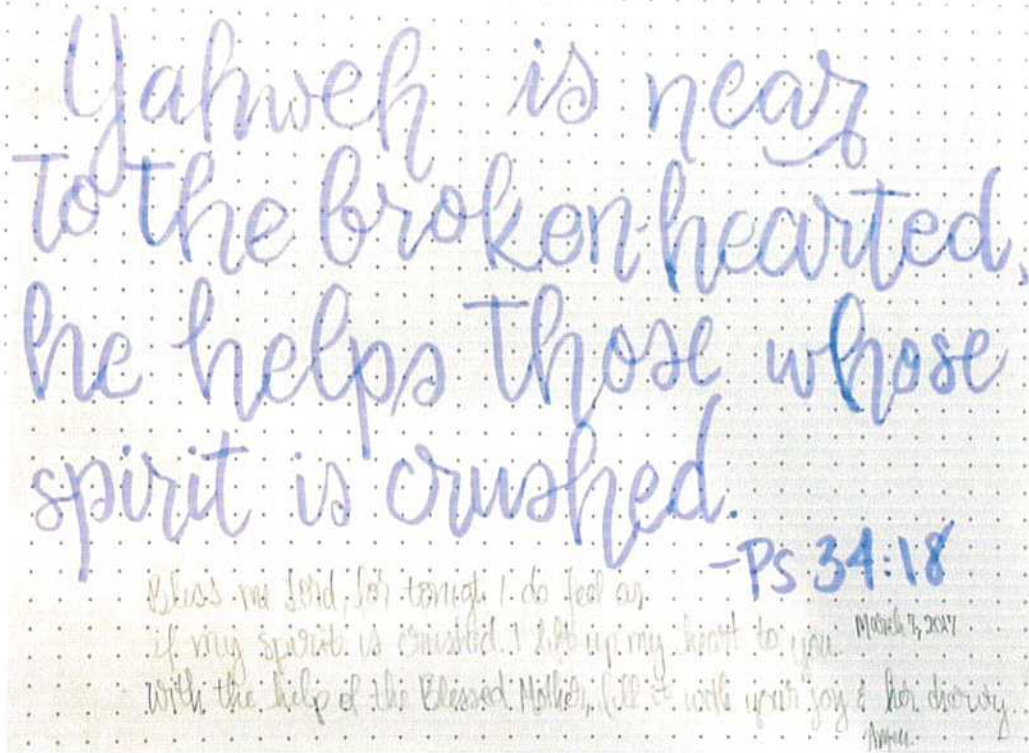 Yahweh is near
to the broken-hearted,
he helps those whose
spirit is crushed.
-PS 34:18
Bless me Lord, for tonight I do feel as
if my spirit is crushed. I lift up my heart to you.
March 7, 2017
With the help of the Blessed Mother, fill it with your joy &
Amen.